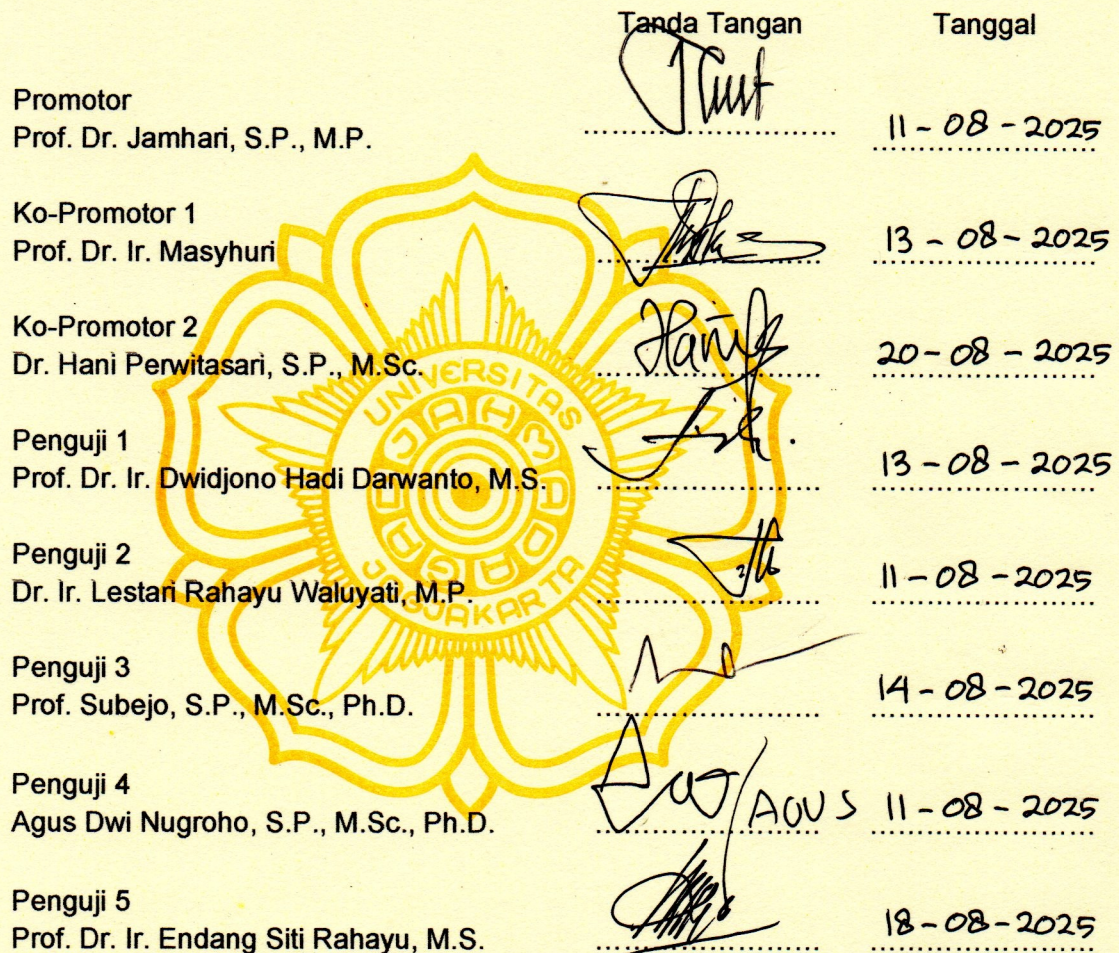 Tanda Tangan Tanggal
Promotor
Prof. Dr. Jamhari, S.P., M.P. 11-08-2025
Ko-Promotor 1
Prof. Dr. Ir. Masyhuri 13-08-2025
Ko-Promotor 2
Dr. Hani Perwitasari, S.P., M.Sc. 20-08-2025
Penguji 1
Prof. Dr. Ir. Dwidjono Hadi Darwanto, M.S. 13-08-2025
Penguji 2
Dr. Ir. Lestari Rahayu Waluyati, M.P. 11-08-2025
Penguji 3
Prof. Subejo, S.P., M.Sc., Ph.D. 14-08-2025
Penguji 4
Agus Dwi Nugroho, S.P., M.Sc., Ph.D. AGUS 11-08-2025
Penguji 5
Prof. Dr. Ir. Endang Siti Rahayu, M.S. 18-08-2025
UNIVERSITAS
GADJAH MADA
JOGJAKARTA